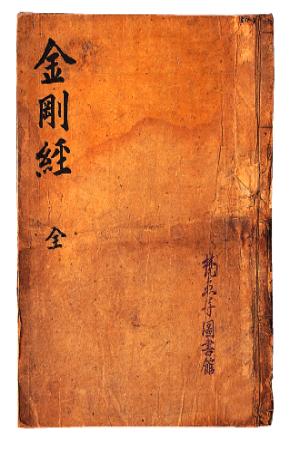 金剛經 全
梵魚寺圖書館